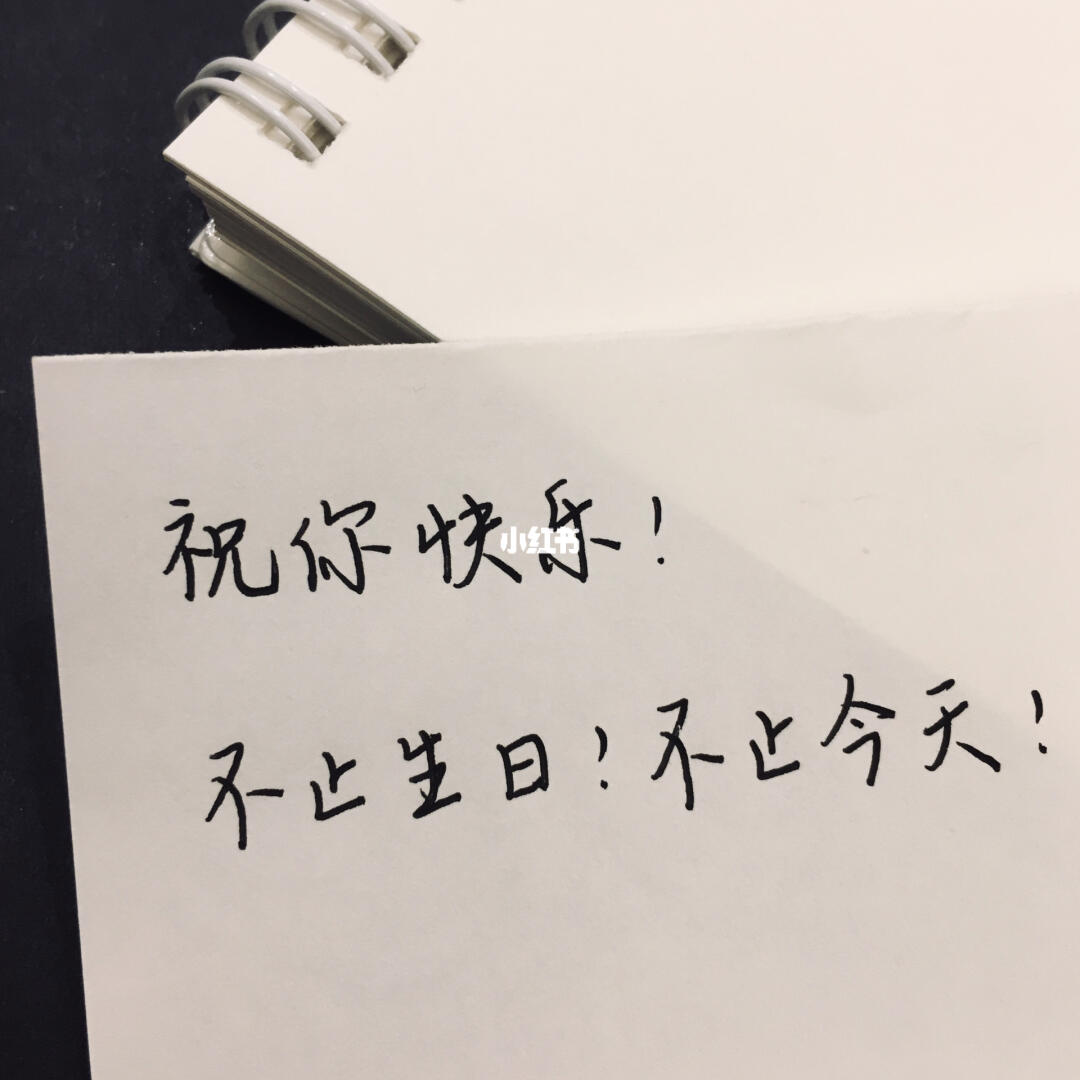 祝你快乐！
小红书
不止生日！不止今天！